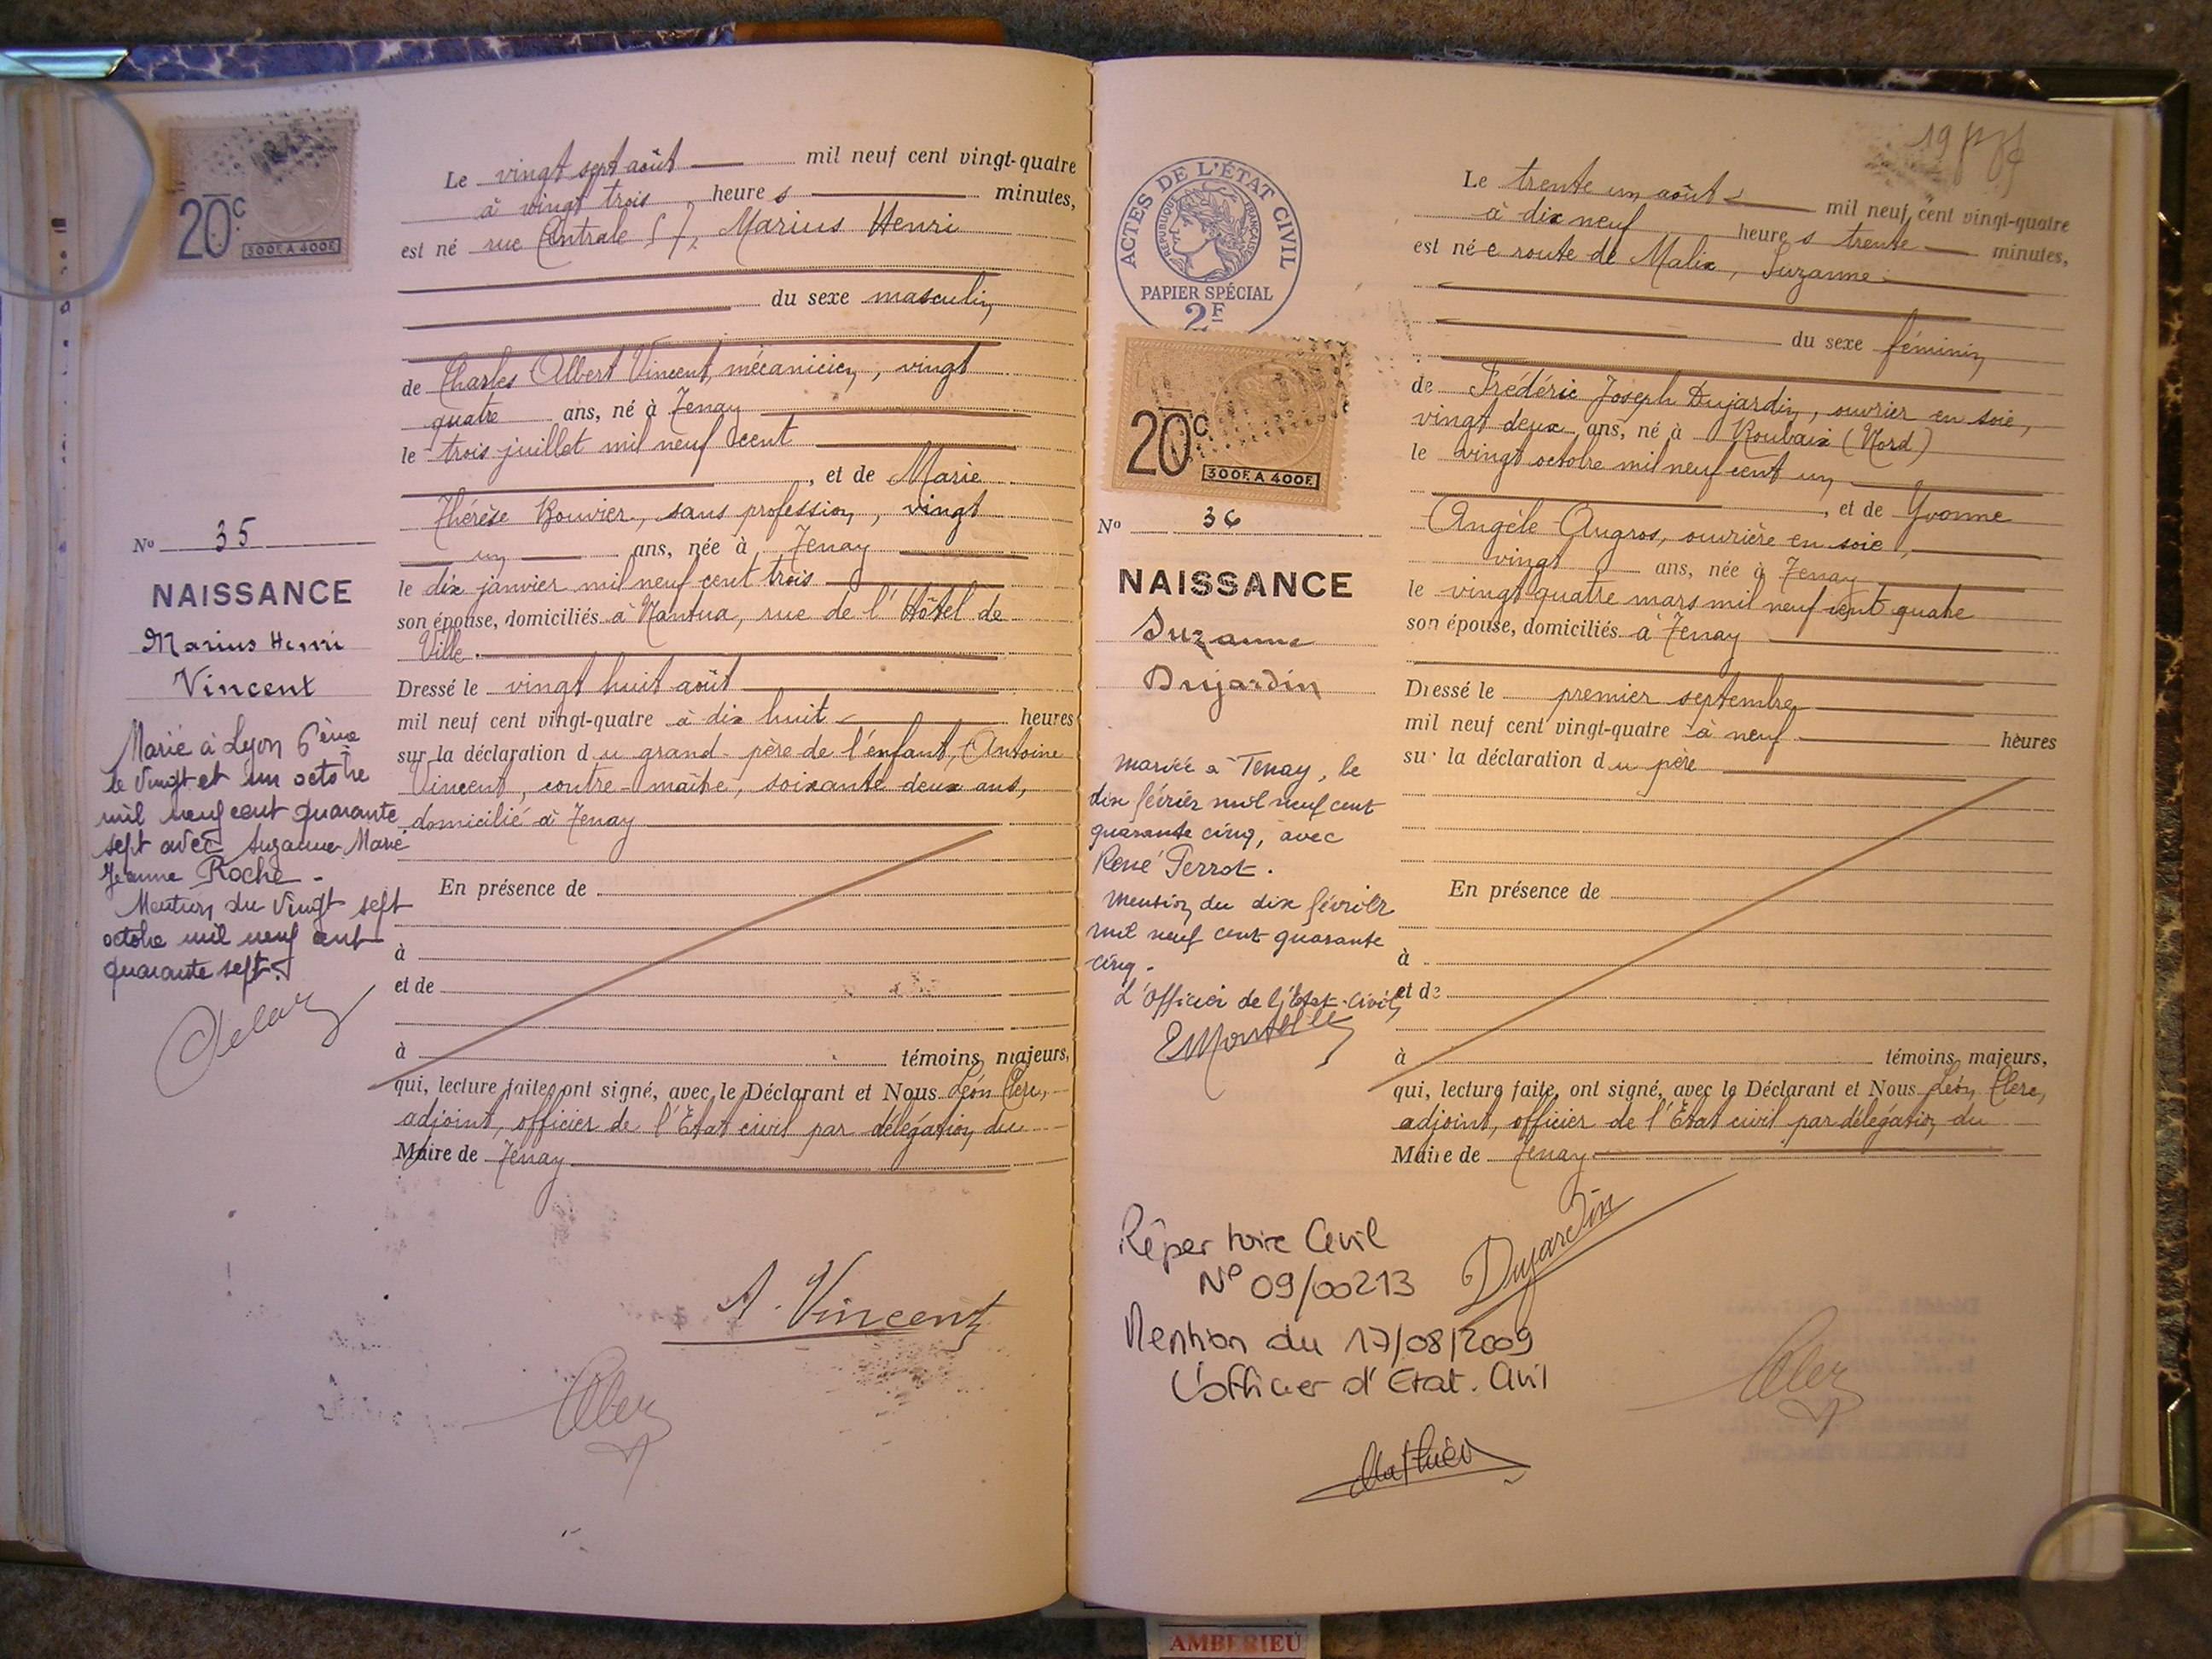 20c
300F. A 400F.
Le vingt sept août mil neuf cent vingt-quatre
à vingt trois heure s minutes,
est né rue Centrale 57, Marius Henri
du sexe masculin
de Charles Albert Vincent, mécanicien, vingt
quatre ans, né à Tenay
le trois juillet mil neuf cent
, et de Marie
Thérèse Bouvier, sans profession, vingt
un ans, née à Tenay
le dix janvier mil neuf cent trois
son épouse, domiciliés à Nantua, rue de l'Hôtel de
Ville.
Dressé le vingt huit août
mil neuf cent vingt-quatre à dix huit heures
sur la déclaration d u grand-père de l'enfant, Antoine
Vincent, contre-maître, soixante deux ans,
domicilié à Tenay
En présence de
à
et de
à témoins majeurs,
qui, lecture faite, ont signé, avec le Déclarant et Nous Léon Clerc,
adjoint, officier de l'État civil par délégation du
Maire de Tenay
A. Vincent
Clerc
No 35
NAISSANCE
Marius Henri
Vincent
Marié à Lyon 6ème
le vingt et un octobre
mil neuf cent quarante
sept avec Suzanne Marie
Jeanne Roche.
Mention du vingt sept
octobre mil neuf cent
quarante sept.
ACTES DE L'ÉTAT CIVIL
RÉPUBLIQUE FRANÇAISE
PAPIER SPÉCIAL
2F
20c
300F. A 400F.
No 36
NAISSANCE
Suzanne
Dujardin
Mariée à Tenay, le
dix février mil neuf cent
quarante cinq, avec
René Perrot.
Mention du dix février
mil neuf cent quarante
cinq.
L'Officier de l'Etat-Civil,
19
Le trente un août mil neuf cent vingt-quatre
à dix neuf heure s trente minutes,
est né e route de Malix, Suzanne
du sexe féminin
de Frédéric Joseph Dujardin, ouvrier en soie,
vingt deux ans, né à Roubaix (Nord)
le vingt octobre mil neuf cent un
, et de Yvonne
Angèle Augros, ouvrière en soie,
vingt ans, née à Tenay
le vingt quatre mars mil neuf cent quatre
son épouse, domiciliés à Tenay
Dressé le premier septembre
mil neuf cent vingt-quatre à neuf heures
sur la déclaration d u père
En présence de
à
et de
à témoins majeurs,
qui, lecture faite, ont signé, avec le Déclarant et Nous Léon Clerc,
adjoint, officier de l'État civil par délégation du
Maire de Tenay
Dujardin
Clerc
Répertoire Civil
N° 09/00213
Mention du 17/08/2009
L'officier d'Etat.Civil
Mathieu
AMBERIEU